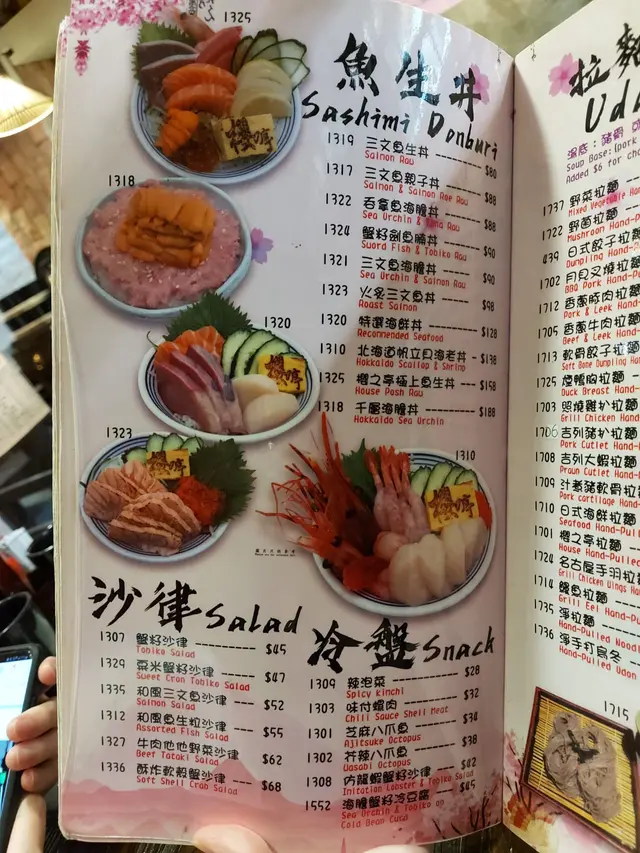 1325
魚生丼
Sashimi Donburi
1319 三文魚生丼 $80
Salmon Raw
1317 三文魚親子丼 $88
Salmon & Salmon Roe Raw
1322 吞拿魚海膽丼 $88
Sea Urchin & Tuna Raw
1324 蟹籽劍魚腩丼 $90
Suord Fish & Tobiko Raw
1321 三文魚海膽丼 $90
Sea Urchin & Salmon Raw
1323 火炙三文魚丼 $98
Roast Salmon
1320 特選海鮮丼 $128
Recommended Seafood
1310 北海道帆立貝海老丼 $138
Hokkaido Scallop & Shrimp
1325 櫻之亭極上魚生丼 $158
House Posh Rau
1318 千層海膽丼 $188
Hokkaido Sea Urchin
1318
1320
1323
1310
沙律 Salad
1307 蟹籽沙律 $45
Tobiko Salad
1329 粟米蟹籽沙律 $47
Sweet Cron Tobiko Salad
1335 和風三文魚沙律 $52
Salmon Salad
1312 和風魚生粒沙律 $55
Assorted Fish Salad
1327 牛肉他他野菜沙律 $62
Beef Tataki Salad
1336 酥炸軟殼蟹沙律 $68
Soft Shell Crab Salad
冷盤 Snack
1309 辣泡菜 $28
Spicy kinchi
1303 味付螺肉 $32
Chili Sauce Shell Meat
1301 芝麻八爪魚 $34
Ajitsuke Octopus
1302 芥辣八爪魚 $38
Wasabi Octopus
1308 仿龍蝦蟹籽沙律 $42
Initation Lobster & Tobiko Salad
1552 海膽蟹籽冷豆腐 $45
Sea Urchin & Tobiko on
Cold Bean Curd
拉麵
Udo
湯底：豬骨
Soup Base:(pork
Added $6 for cha
1737 野菜拉麵
Mixed Vegetable Hand
1722 野菌拉麵
Mushroom Hand-P
439 日式餃子拉麵
Dumpling Hand-P
1702 月見叉燒拉麵
BBQ Pork Hand-P
1712 香蔥豚肉拉麵
Pork & Leek Hand-P
1705 香蔥牛肉拉麵
Beef & Leek Hand-P
1713 軟骨餃子拉麵
Soft Bone Dumpling Han
1725 煙鴨胸拉麵
Duck Breast Hand-
1703 照燒雞扒拉麵
Grill Chicken Hand-P
1706 吉列豬扒拉麵
Pork Cutlet Hand-P
1708 吉列大蝦拉麵
Praun Cutlet Hand-P
1709 汁煮豬軟骨拉
Pork cartilage Hand-P
1710 日式海鮮拉麵
Seafood Hand-Pul
1701 櫻之亭拉麵
House Hand-Pulled
1724 名古屋手羽拉
Grill Chicken Wings Han
1714 鰻魚拉麵
Grill Eel Hand-Pu
1735 淨拉麵
Hand-Pulled Noodl
1736 淨手打烏冬
Hand-Pulled Udon
1715